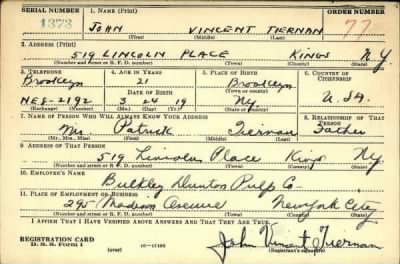 SERIAL NUMBER 1. NAME (Print) ORDER NUMBER
1373 JOHN VINCENT TIERNAN 77
(First) (Middle) (Last)
2. ADDRESS (Print)
519 LINCOLN PLACE KINGS N.Y.
(Number and street or R. F. D. number) (Town) (County) (State)
3. TELEPHONE 4. AGE IN YEARS 5. PLACE OF BIRTH 6. COUNTRY OF CITIZENSHIP
Brooklyn 21 Brooklyn
DATE OF BIRTH (Town or county)
NE8-2192 3 24 19 Ny. U.S.A.
(Exchange) (Number) (Mo.) (Day) (Yr.) (State or country)
7. NAME OF PERSON WHO WILL ALWAYS KNOW YOUR ADDRESS 8. RELATIONSHIP OF THAT PERSON
Mr. Patrick Tiernan Father
(Mr., Mrs., Miss) (First) (Middle) (Last)
9. ADDRESS OF THAT PERSON
519 Lincoln Place Kings Ny.
(Number and street or R. F. D. number) (Town) (County) (State)
10. EMPLOYER'S NAME
Bulkley Dunton Pulp Co
11. PLACE OF EMPLOYMENT OR BUSINESS
295 Madison Avenue New York City
(Number and street or R. F. D. number) (Town) (County) (State)
I AFFIRM THAT I HAVE VERIFIED ABOVE ANSWERS AND THAT THEY ARE TRUE.
REGISTRATION CARD
D. S. S. Form 1 (over) 16—17105 John Vincent Tiernan
(Registrant's signature)